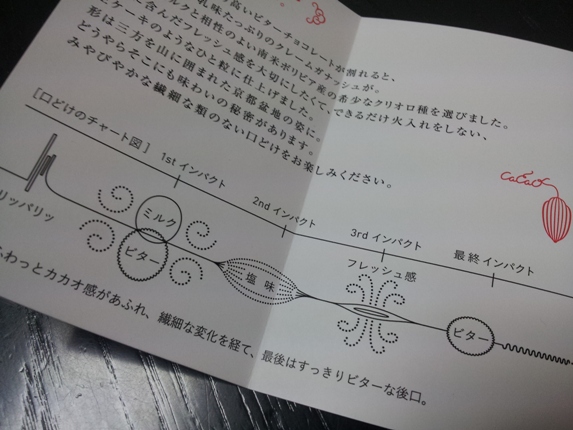 高いビターチョコレートが割れると、
乳味たっぷりのクレームガナッシュが。
ミルクと相性のよい南米ボリビア産の希少なクリオロ種を選びました。
含んだフレッシュ感を大切にしたくて、できるだけ火入れをしない、
ケーキのようなひと粒に仕上げました。
形は三方を山に囲まれた京都盆地の姿に。
どうやらそこにも味わいの秘密があります。
みやびやかな繊細な類のない口どけをお楽しみください。
CaCaO
[口どけのチャート図]
1st インパクト
2nd インパクト
3rd インパクト
最終インパクト
リッパリッ
ミルク
ビター
塩味
フレッシュ感
ビター
ふわっとカカオ感があふれ、繊細な変化を経て、最後はすっきりビターな後口。